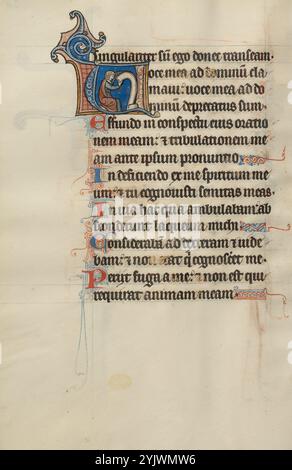 singulariter sū ego donec transeam.
Voce mea ad dominum cla
maui: uoce mea ad do
minum deprecatus sum.
Effundo in conspectu eius oratio
nem meam: & tribulationem me
am ante ipsum pronuntio.
In deficiendo ex me spiritum
meum: & tu cognouisti semitas meas.
In uia hac qua ambulabam: ab
sconderunt laqueum michi.
Considerabam ad dexteram & uide
bam: & non erat qͥ cognosceret me.
Periit fuga a me: & non est qui
requirat animam meam.
alamy
Image ID: 2YJWMW6
www.alamy.com